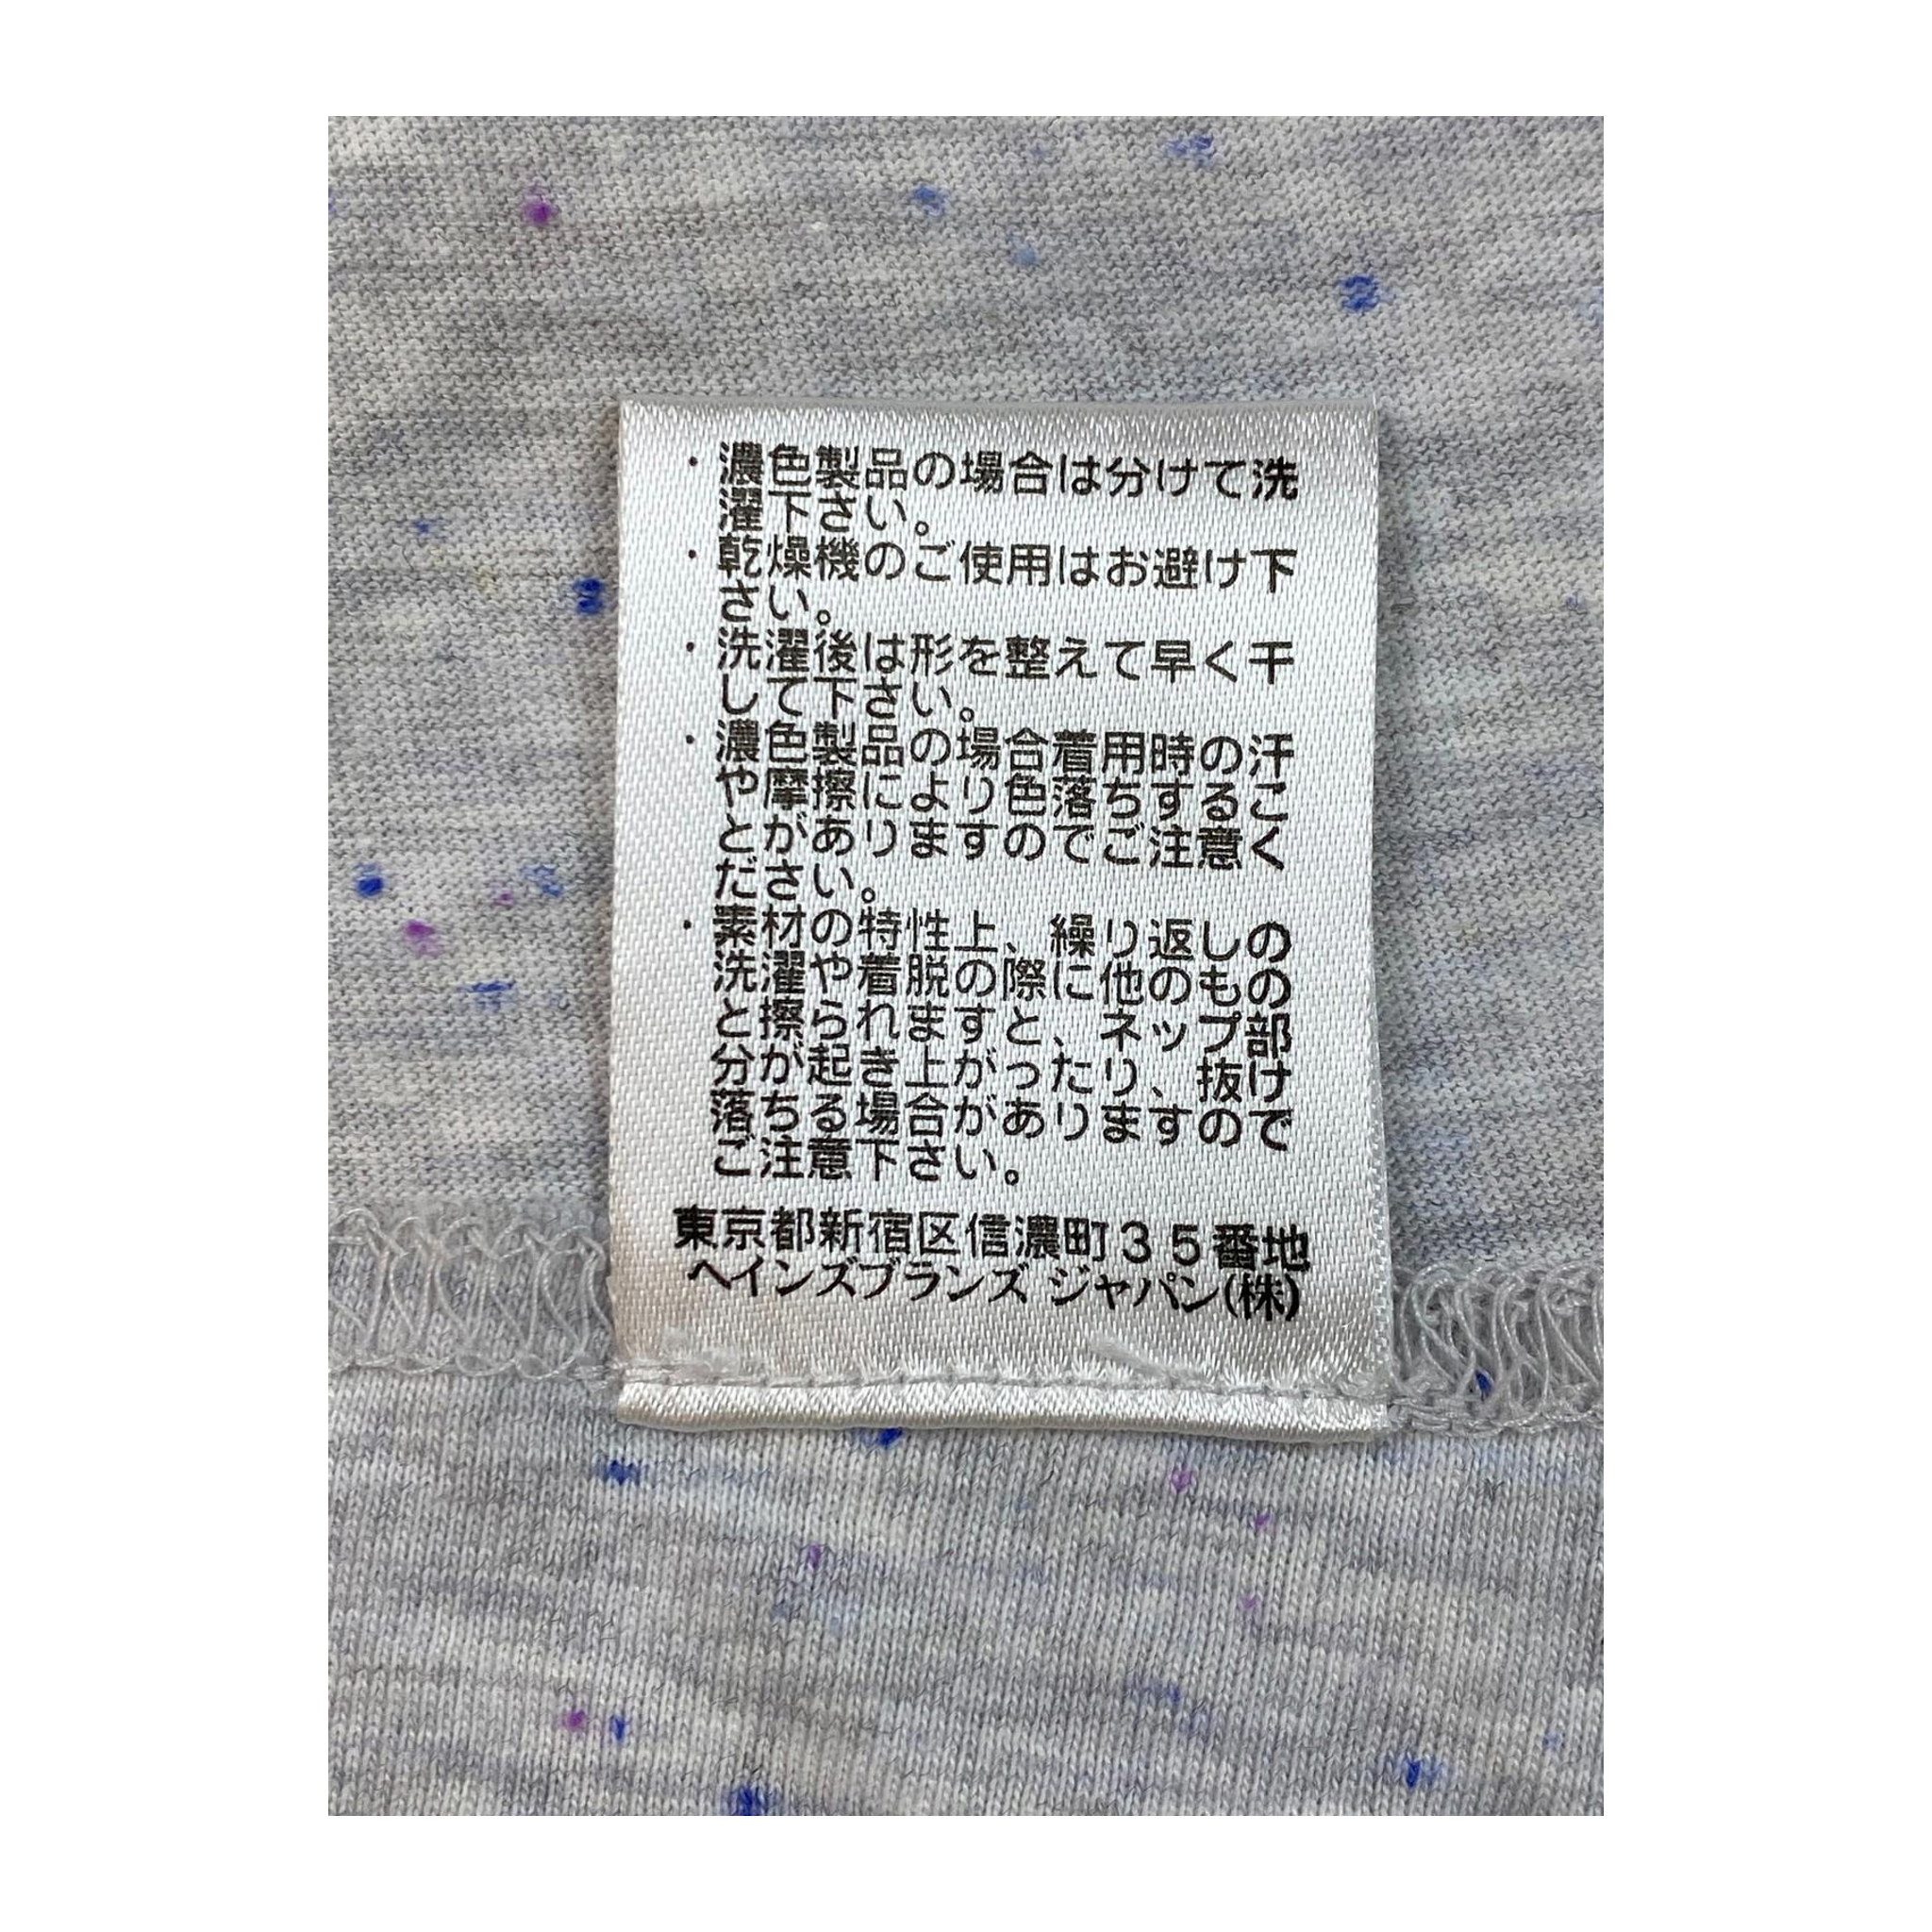 ・濃色製品の場合は分けて洗
濯下さい。
・乾燥機のご使用はお避け下
さい。
・洗濯後は形を整えて早く干
して下さい。
・濃色製品の場合着用時の汗
や摩擦により色落ちするこ
とがありますのでご注意く
ださい。
・素材の特性上、繰り返しの
洗濯や着脱の際に他のもの
と擦られますと、ネップ部
分が起き上がったり、抜け
落ちる場合がありますので
ご注意下さい。
東京都新宿区信濃町35番地
ヘインズブランズ ジャパン(株)